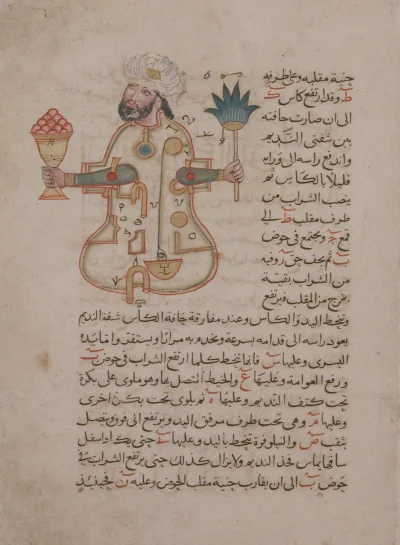 جنبة مقلبه وعلى طرفه
ط وقد ارتفع كاس ك
الى ان صارت حافته
بين شفتى النديم
واندفع راسه الى ورايه
قليلا بالكاس ثم
ينصب الشراب من
طرف مقلب ط الى
قمع ويجتمع فى حوض
ثم يجف حتى
من الشراب بقية
تخرج من المقلب فيرتفع
وتنحط اليد والكاس وعند مفارقة حافة الكاس شفة النديم
يعود راسه الى قدامه بسرعة ويحدوبه مرارا ويستقر واما يده
اليسرى وعليها س فانها تنحط كلما ارتفع الشراب فى حوض
ورفع العوامة وعليها ع والخيط المتصل بها وهو ملوى على بكرة
تحت كتف النديم وعليها ه ثم يلوى تحت بكرة اخرى
وعليها م وهى تحت طرف مرفق اليد ويرتفع الى فوق ويتصل
بثقب ص والنيلوفرة تنحط باليد وعليها حتى يكاد اسفل
ساقها يماس فخذ النديم ولا يزال كذلك حتى يرتفع الشراب فى
حوض الى ان يقارب جنبة مقلب الحوض وعليه ن فحينيذ